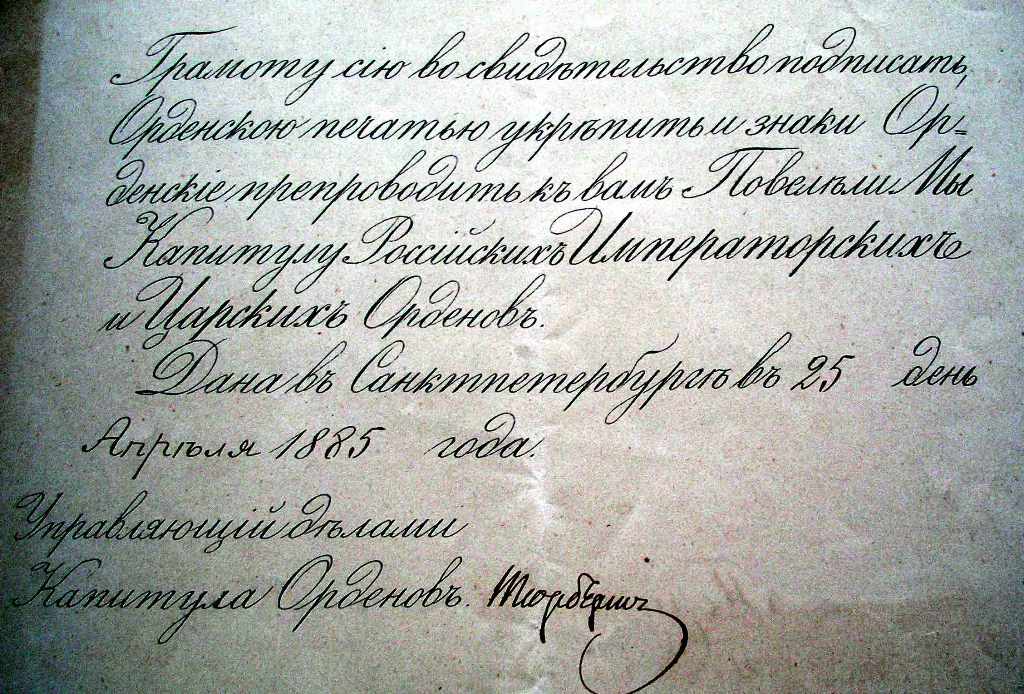 Грамоту сію во свидѣтельство подписать,
Орденскою печатью укрѣпить и знаки Ор=
денскіе препроводить къ вамъ Повелѣли Мы
Капитулу Россійскихъ Императорскихъ
и Царскихъ Орденовъ.
Дана въ Санктпетербургѣ въ 25 день
Апрѣля 1885 года.
Управляющій дѣлами
Капитула Орденовъ.